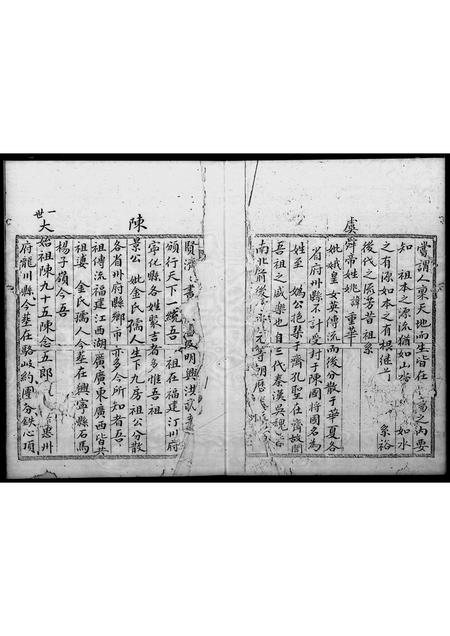 嘗謂人稟天地而生皆在 之內要
知 祖本之源流猶如山水 如水
之有源如木之有根継 糸裕
後代之添芳昔 祖系
虞舜帝姓姚諱重華
妣娥皇女英傳流而後分散于華夏各
省府州縣不計受封于陳國將國名為
姓至 媯公抱琴于齊孔聖在齊故聞
吾祖之盛樂也自三代秦漢吳魏
南北前後 元等朝歷
賢濟 畫 明興洪武
頒行天下一統吾 祖在福建汀川府
寧化縣各姓聚吉者多惟吾祖
陳
景公 妣金氏孺人生下九房祖公分散
各省州府縣鄉市亦多今所知者吾
祖傳流福建江西湖廣廣東廣西皆共
祖婆 金氏孺人今塟在興寧縣石馬
楊子嶺今吾
一世
大始祖陳九十五陳念五郎 惠州
府龍川縣今塟在駱岐約團各鉄心頂